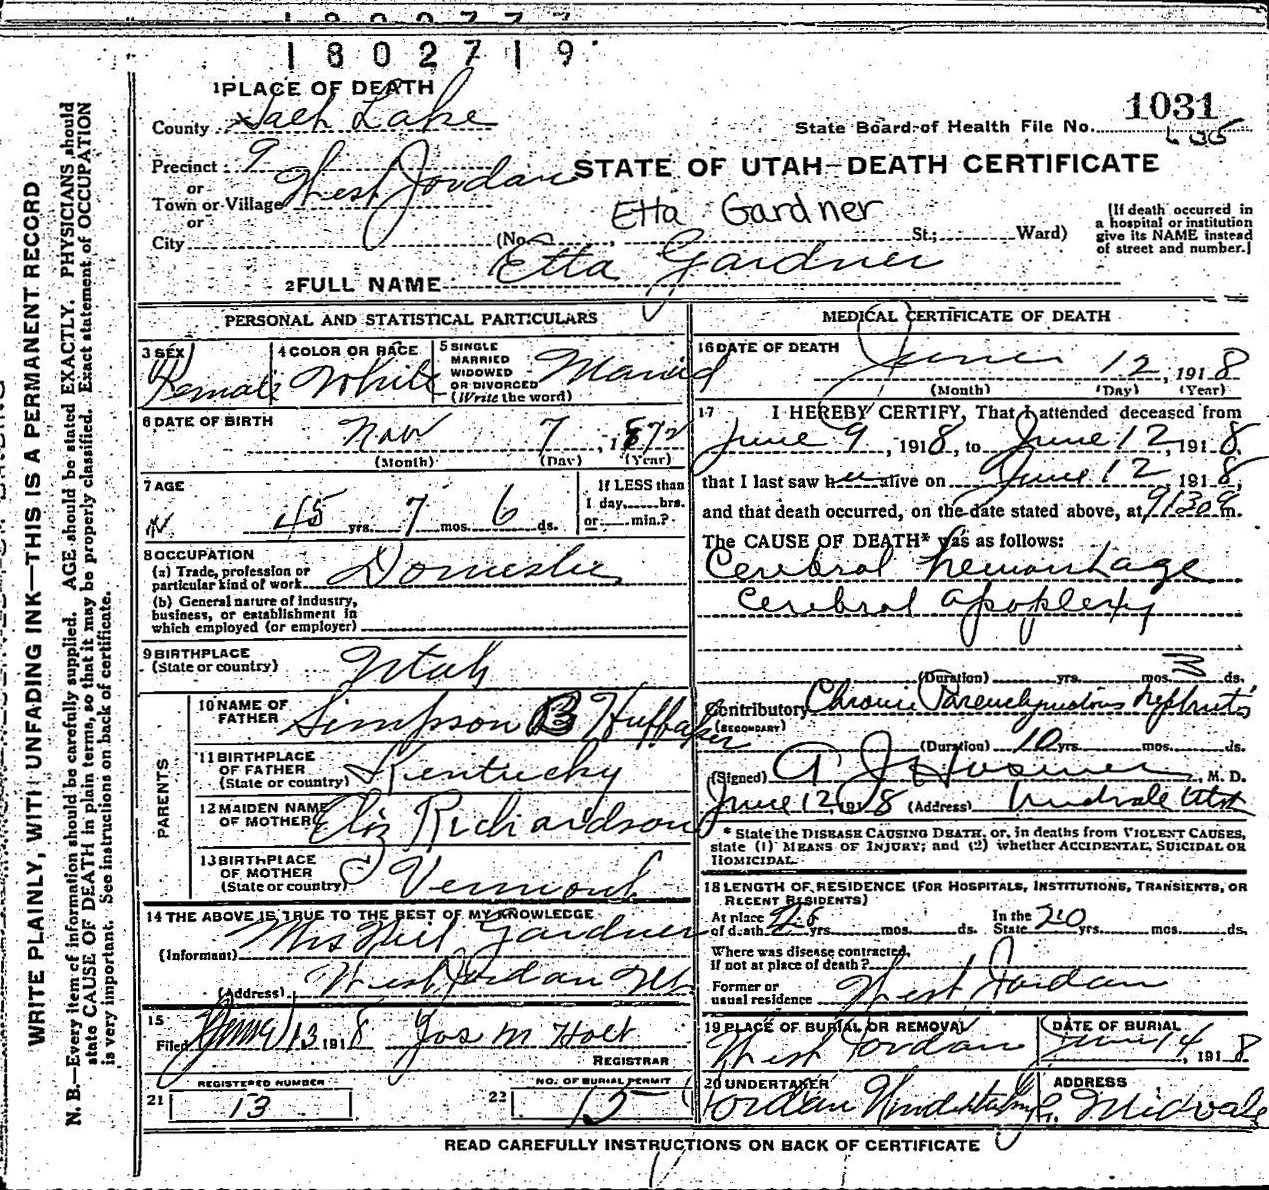 1802719
1PLACE OF DEATH
County Salt Lake
1031
State Board of Health File No.
Precinct 9
or
Town or Village West Jordan
or
City
STATE OF UTAH—DEATH CERTIFICATE
Etta Gardner
(No. St.; Ward)
(If death occurred in
a hospital or institution
give its NAME instead
of street and number.)
2FULL NAME Etta Gardner
PERSONAL AND STATISTICAL PARTICULARS
3 SEX
Female
4 COLOR OR RACE
White
5 SINGLE
MARRIED
WIDOWED
OR DIVORCED
(Write the word)
Married
6 DATE OF BIRTH
Nov 7, 1872
(Month) (Day) (Year)
7 AGE
45 yrs. 7 mos. 6 ds.
If LESS than
1 day, hrs.
or min.?
8 OCCUPATION
(a) Trade, profession or
particular kind of work Domestic
(b) General nature of industry,
business, or establishment in
which employed (or employer)
9 BIRTHPLACE
(State or country) Utah
PARENTS
10 NAME OF
FATHER Simpson B Huffaker
11 BIRTHPLACE
OF FATHER
(State or country) Kentucky
12 MAIDEN NAME
OF MOTHER Eliz Richardson
13 BIRTHPLACE
OF MOTHER
(State or country) Vermont
14 THE ABOVE IS TRUE TO THE BEST OF MY KNOWLEDGE
(Informant) Mrs Neil Gardner
(Address) West Jordan Ut
15
Filed June 13 1918 Jos M Holt
REGISTRAR
21
REGISTERED NUMBER
13
22
NO. OF BURIAL PERMIT
15
MEDICAL CERTIFICATE OF DEATH
16 DATE OF DEATH
June 12, 1918
(Month) (Day) (Year)
17 I HEREBY CERTIFY, That I attended deceased from
June 9, 1918, to June 12, 1918.
that I last saw her alive on June 12, 1918,
and that death occurred, on the date stated above, at 9:30 m.
The CAUSE OF DEATH* was as follows:
Cerebral hemorrhage
Cerebral apoplexy
(Duration) yrs. mos. 3 ds.
Contributory Chronic Parenchymatous Nephritis
(SECONDARY)
(Duration) 10 yrs. mos. ds.
(Signed) , M. D.
June 12, 1918 (Address) Midvale Utah
* State the DISEASE CAUSING DEATH, or, in deaths from VIOLENT CAUSES,
state (1) MEANS OF INJURY; and (2) whether ACCIDENTAL, SUICIDAL OR
HOMICIDAL.
18 LENGTH OF RESIDENCE (FOR HOSPITALS, INSTITUTIONS, TRANSIENTS, OR
RECENT RESIDENTS)
At place
of death yrs. mos. ds.
In the
State 20 yrs. mos. ds.
Where was disease contracted,
if not at place of death?
Former or
usual residence West Jordan
19 PLACE OF BURIAL OR REMOVAL
West Jordan
DATE OF BURIAL
June 14, 1918
20 UNDERTAKER
Jordan
ADDRESS
Midvale
READ CAREFULLY INSTRUCTIONS ON BACK OF CERTIFICATE
WRITE PLAINLY, WITH UNFADING INK—THIS IS A PERMANENT RECORD
N. B.—Every item of information should be carefully supplied. AGE should be stated EXACTLY. PHYSICIANS should
state CAUSE OF DEATH in plain terms, so that it may be properly classified. Exact statement of OCCUPATION
is very important. See instructions on back of certificate.